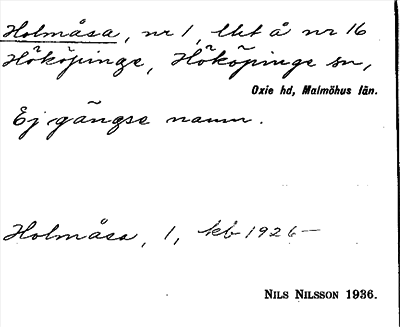 Holmåsa, nr 1, lht å nr 16
Hököpinge, Hököpinge sn,
Oxie hd, Malmöhus län.
Ej gängse namn.
Holmåsa, 1, kb 1926–
NILS NILSSON 1936.